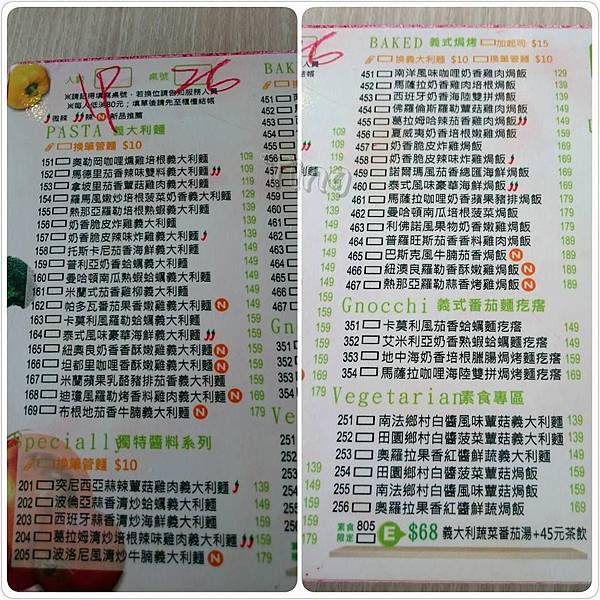 人數 P 桌號 26
※請記得填寫桌號，若換位請告知服務人員
※每人低消80元；填單後請先至櫃檯結帳
微辣 辣 N 新品推薦
PASTA 義大利麵
換筆管麵 $10
151 奧勒岡咖哩燻雞培根義大利麵 109
152 馬德里茄香辣味雙料義大利麵 109
153 拿坡里茄香蕈菇雞肉義大利麵 109
154 羅馬風嫩炒培根菠菜奶香義大利麵 109
155 熱那亞羅勒培根熟蝦義大利麵 139
156 奶香脆皮炸雞義大利麵 139
157 奶香脆皮辣味炸雞義大利麵 139
158 托斯卡尼茄香海鮮義大利麵 149
159 普利亞奶香蛤蠣義大利麵 149
160 曼哈頓南瓜熟蝦蛤蠣義大利麵 149
161 米蘭式茄香雞柳義大利麵 149
162 帕多瓦番茄果香嫩雞義大利麵 N
163 卡莫利風羅勒蛤蠣義大利麵 159
164 泰式風味豪華海鮮義大利麵 159
165 紐奧良奶香香酥嫩雞義大利麵 N 159
166 坦都里咖哩香酥嫩雞義大利麵 N 159
167 米蘭蘋果乳酪豬排茄香義大利麵 169
168 迪瓊風羅勒烤香料雞肉義大利麵 N 169
169 布根地茄香牛腩義大利麵 N 179
Specially 獨特醬料系列
換筆管麵 $10
201 突尼西亞蒜辣蕈菇雞肉義大利麵 139
202 波倫亞蒜香清炒蛤蠣義大利麵 139
203 西班牙蒜香清炒海鮮義大利麵 159
204 葛拉姆清炒培根辣味雞肉義大利麵 159
205 波洛尼風清炒牛腩義大利麵 N 179
BAKED 義式焗烤 加起司 $15
換義大利麵 $10 換筆管麵 $10
451 南洋風味咖哩奶香雞肉焗飯 129
452 馬薩拉奶香培根焗飯 139
453 西班牙奶香海陸雙拼焗飯 139
454 佛羅倫斯羅勒蕈菇雞肉焗飯 139
455 葛拉姆哈辣茄香雞肉焗飯 139
456 夏威夷奶香嫩雞焗飯 139
457 奶香脆皮炸雞焗飯 149
458 奶香脆皮辣味炸雞焗飯 149
459 諾爾瑪風茄香總匯海鮮焗飯 159
460 泰式風味豪華海鮮焗飯 159
461 馬薩拉咖哩奶香蘋果豬排焗飯 159
462 曼哈頓南瓜培根菠菜焗飯 159
463 利佛諾風果物奶香嫩雞焗飯 169
464 普羅旺斯茄香香料雞肉焗飯 169
465 巴斯克風牛腩茄香焗飯 N 189
466 紐澳良羅勒香酥嫩雞焗飯 N 189
467 熱那亞羅勒蒜香烤雞焗飯 N 189
Gnocchi 義式番茄麵疙瘩
351 卡莫利風茄香蛤蠣麵疙瘩 149
352 艾米利亞奶香熟蝦蛤蠣麵疙瘩 159
353 地中海奶香培根臘腸焗烤麵疙瘩 169
354 馬薩拉咖哩海陸雙拼焗烤麵疙瘩 169
Vegetarian 素食專區
251 南法鄉村白醬風味蕈菇義大利麵 139
252 田園鄉村白醬菠菜蕈菇義大利麵 139
253 奧羅拉果香紅醬鮮蔬義大利麵 159
254 田園鄉村白醬菠菜蕈菇焗飯 159
255 南法鄉村白醬風味蕈菇焗飯 159
256 奧羅拉果香紅醬鮮蔬焗飯 169
素食限定 805 E $68 義大利蔬菜番茄湯+45元茶飲